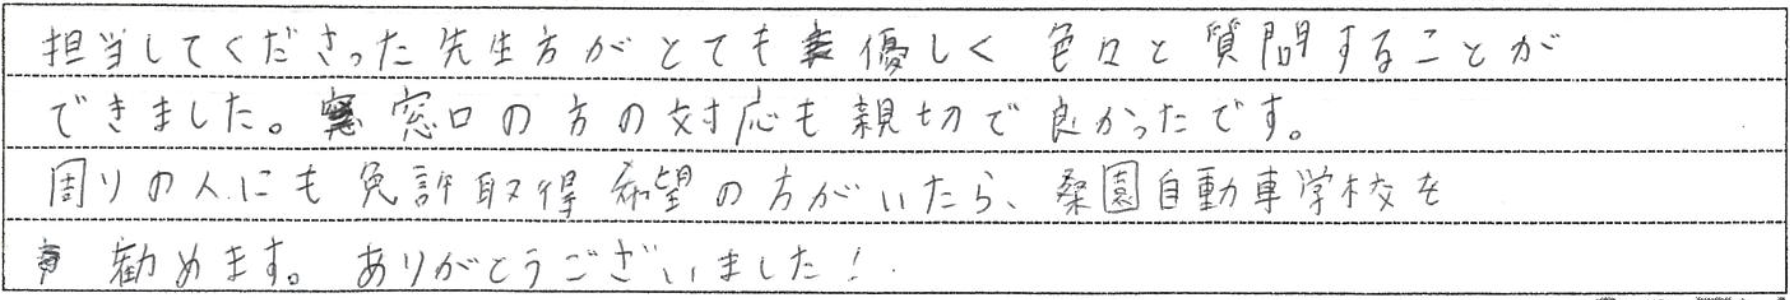 担当してくださった先生方がとても優しく色々と質問することが
できました。窓口の方の対応も親切で良かったです。
周りの人にも免許取得希望の方がいたら、桑園自動車学校を
勧めます。ありがとうございました!